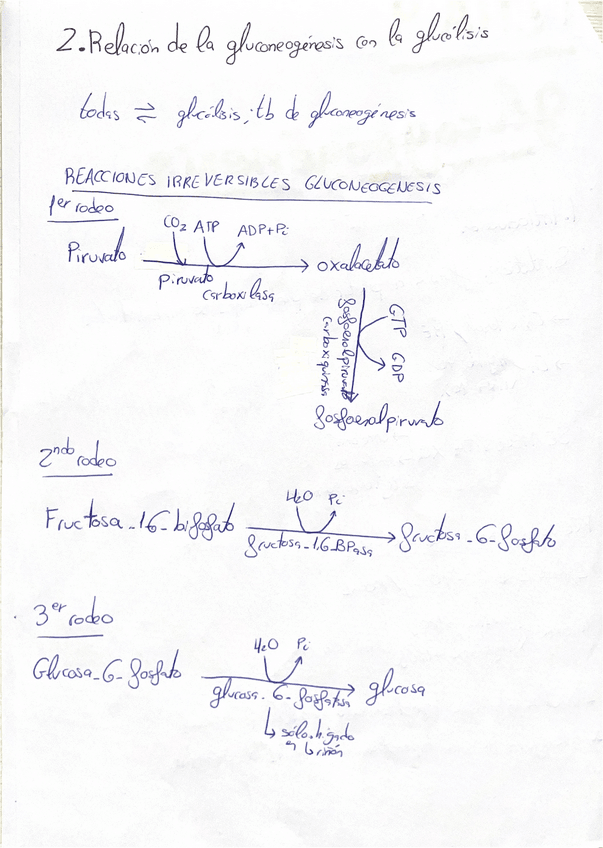 2. Relación de la gluconeogénesis con la glucólisis
todas ⇌ glicólisis; tb de gluconeogénesis
REACCIONES IRREVERSIBLES GLUCONEOGENESIS
1er rodeo
CO2 ATP ADP+Pi
Piruvato → oxalacetato
piruvato
carboxilasa
fosfoenolpiruvato
carboxiquinasa
GTP
GDP
fosfoenolpiruvato
2ndo rodeo
H2O Pi
Fructosa-1,6-bifosfato → fructosa-6-fosfato
fructosa-1,6-BPasa
3er rodeo
H2O Pi
Glucosa-6-fosfato → glucosa
glucosa-6-fosfatasa
↳ sólo hígado
↳ riñón